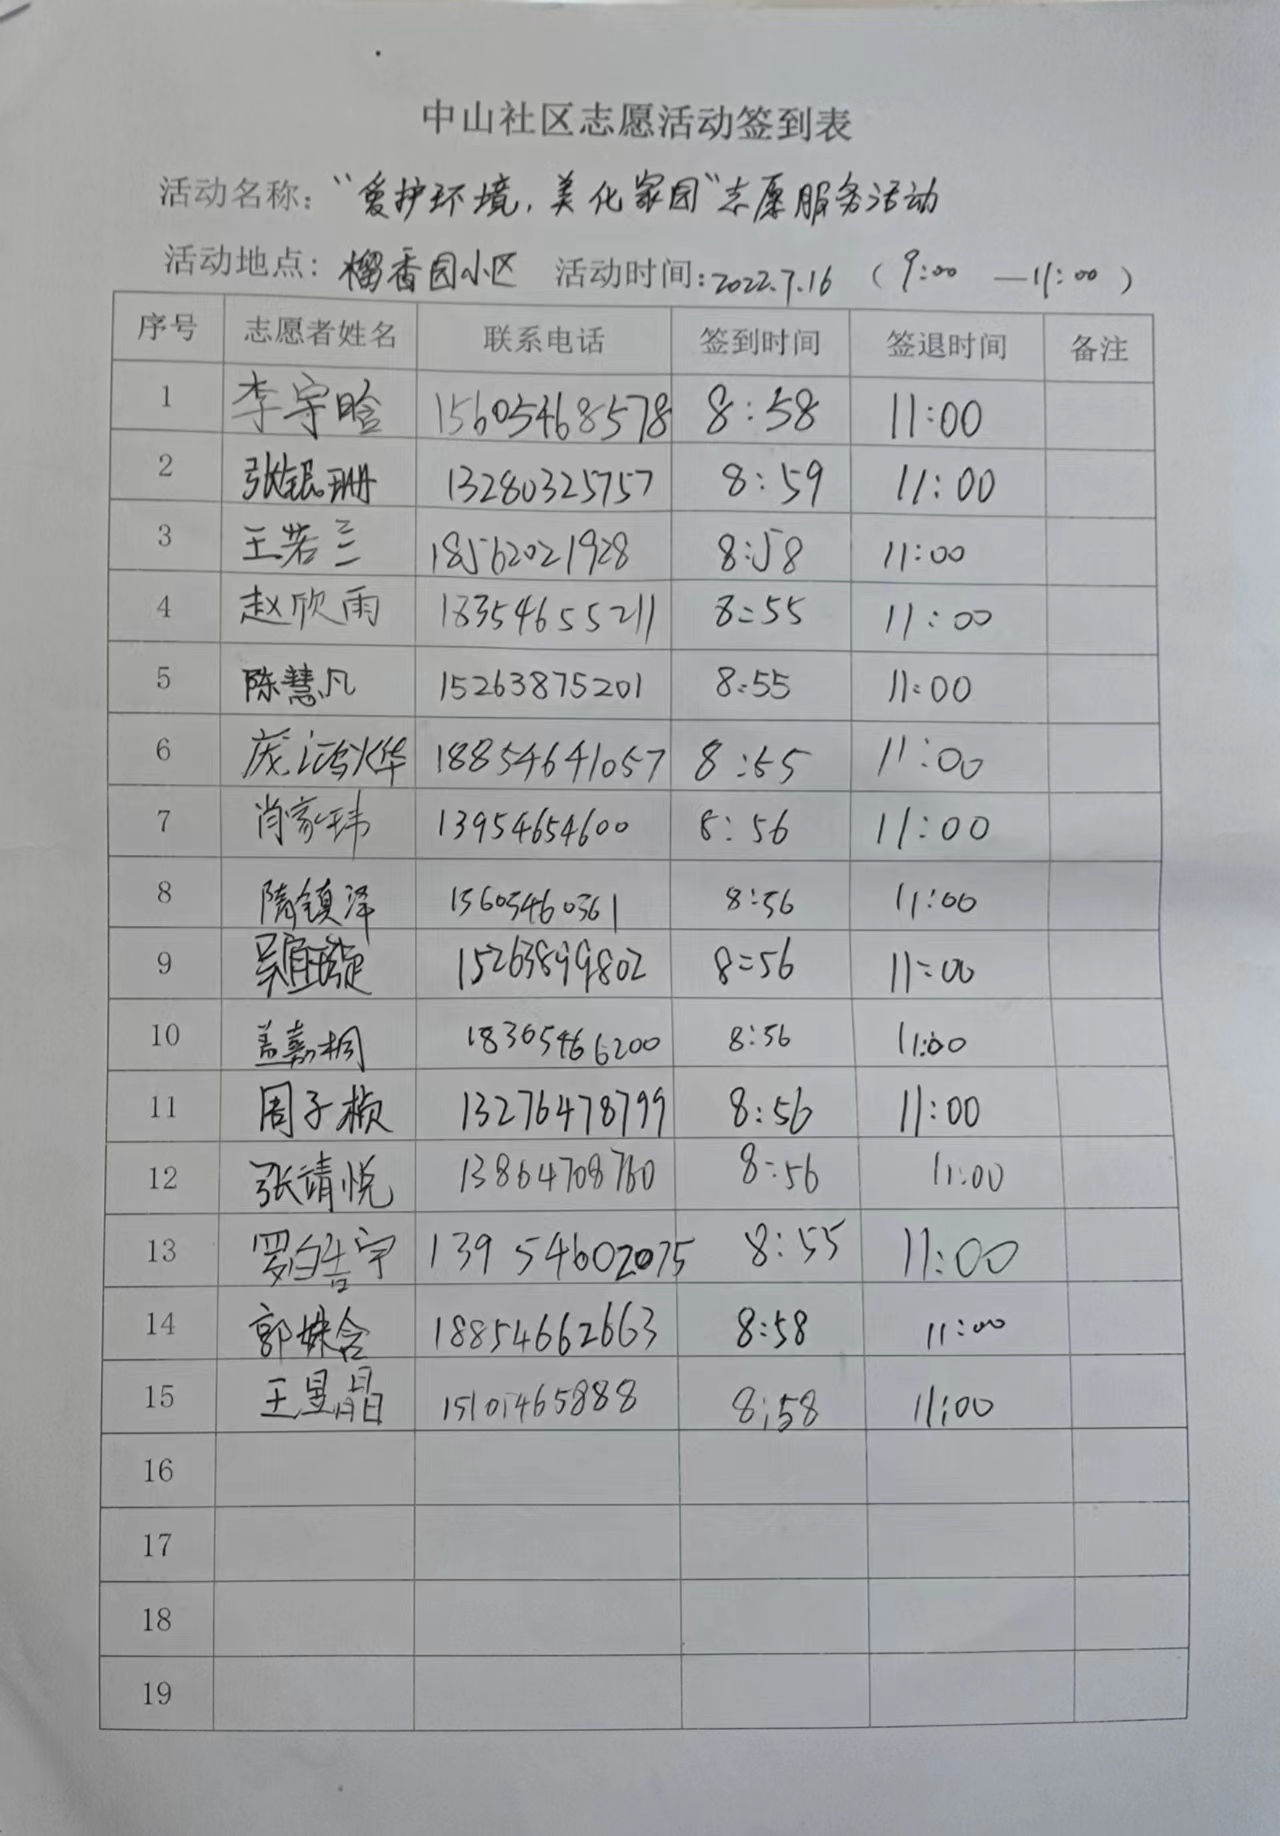 中山社区志愿活动签到表
活动名称：“爱护环境，美化家园”志愿服务活动
活动地点：榴香园小区 活动时间：2022.7.16 （9:00 —11:00）
序号 志愿者姓名 联系电话 签到时间 签退时间 备注
1 李宇晗 15605468578 8:58 11:00
2 张银珊 13280325757 8:59 11:00
3 王若兰 18562021928 8:58 11:00
4 赵欣雨 18354655211 8:55 11:00
5 陈慧凡 15263875201 8:55 11:00
6 庞鸿烨 18854641057 8:55 11:00
7 肖家玮 13954654600 8:56 11:00
8 隋镇泽 15605460361 8:56 11:00
9 吴宜璇 15263899802 8:56 11:00
10 盖嘉桐 18305466200 8:56 11:00
11 周子桢 13276478799 8:56 11:00
12 张靖悦 13864708760 8:56 11:00
13 罗皓宇 13954602075 8:55 11:00
14 郭姝含 18854662663 8:58 11:00
15 王昱晶 8:58 11:00
16
17
18
19